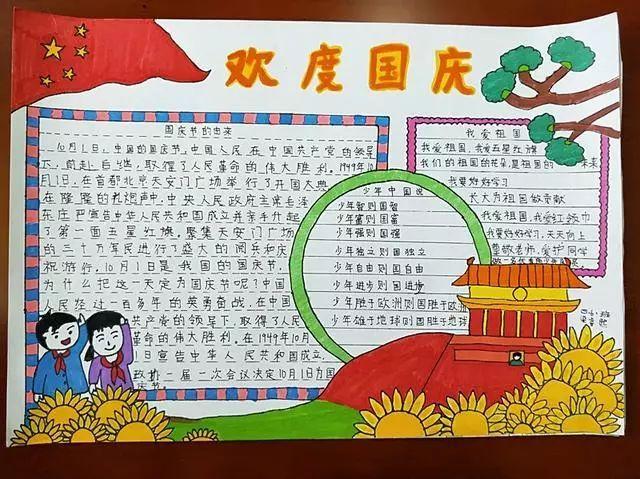 欢度国庆
国庆节的由来
10月1日,中国的国庆节,中国人民在中国共产党的领导
下,前赴后继,取得了人民革命的伟大胜利。1949年10
月1日,在首都北京天安门广场举行了开国大典
在隆隆的礼炮声中,中央人民政府主席毛泽
东庄严宣告中华人民共和国成立并亲手升起
了第一面五星红旗。聚集天安门广场
的三十万军民进行了盛大的阅兵和庆
祝游行。10月1日是我国的国庆节,
为什么把这一天定为国庆节呢?中国
人民经过一百多年的英勇奋战,在中国
共产党的领导下,取得了人民
革命的伟大胜利。在1949年10月
1日宣告中华人民共和国成立,
政协一届一次会议决定10月1日为国
庆节。
少年中国说
少年智则国智
少年富则国富
少年强则国强
少年独立则国独立
少年自由则国自由
少年进步则国进步
少年胜于欧洲则国胜于欧洲
少年雄于地球则国胜于地球
我爱祖国
我爱祖国,我爱五星红旗
我们的祖国的花朵,是祖国的未来
我要好好学习
长大为祖国做贡献
我爱祖国,我爱红领巾
我要好好学习,天天向上
尊敬老师,爱护同学